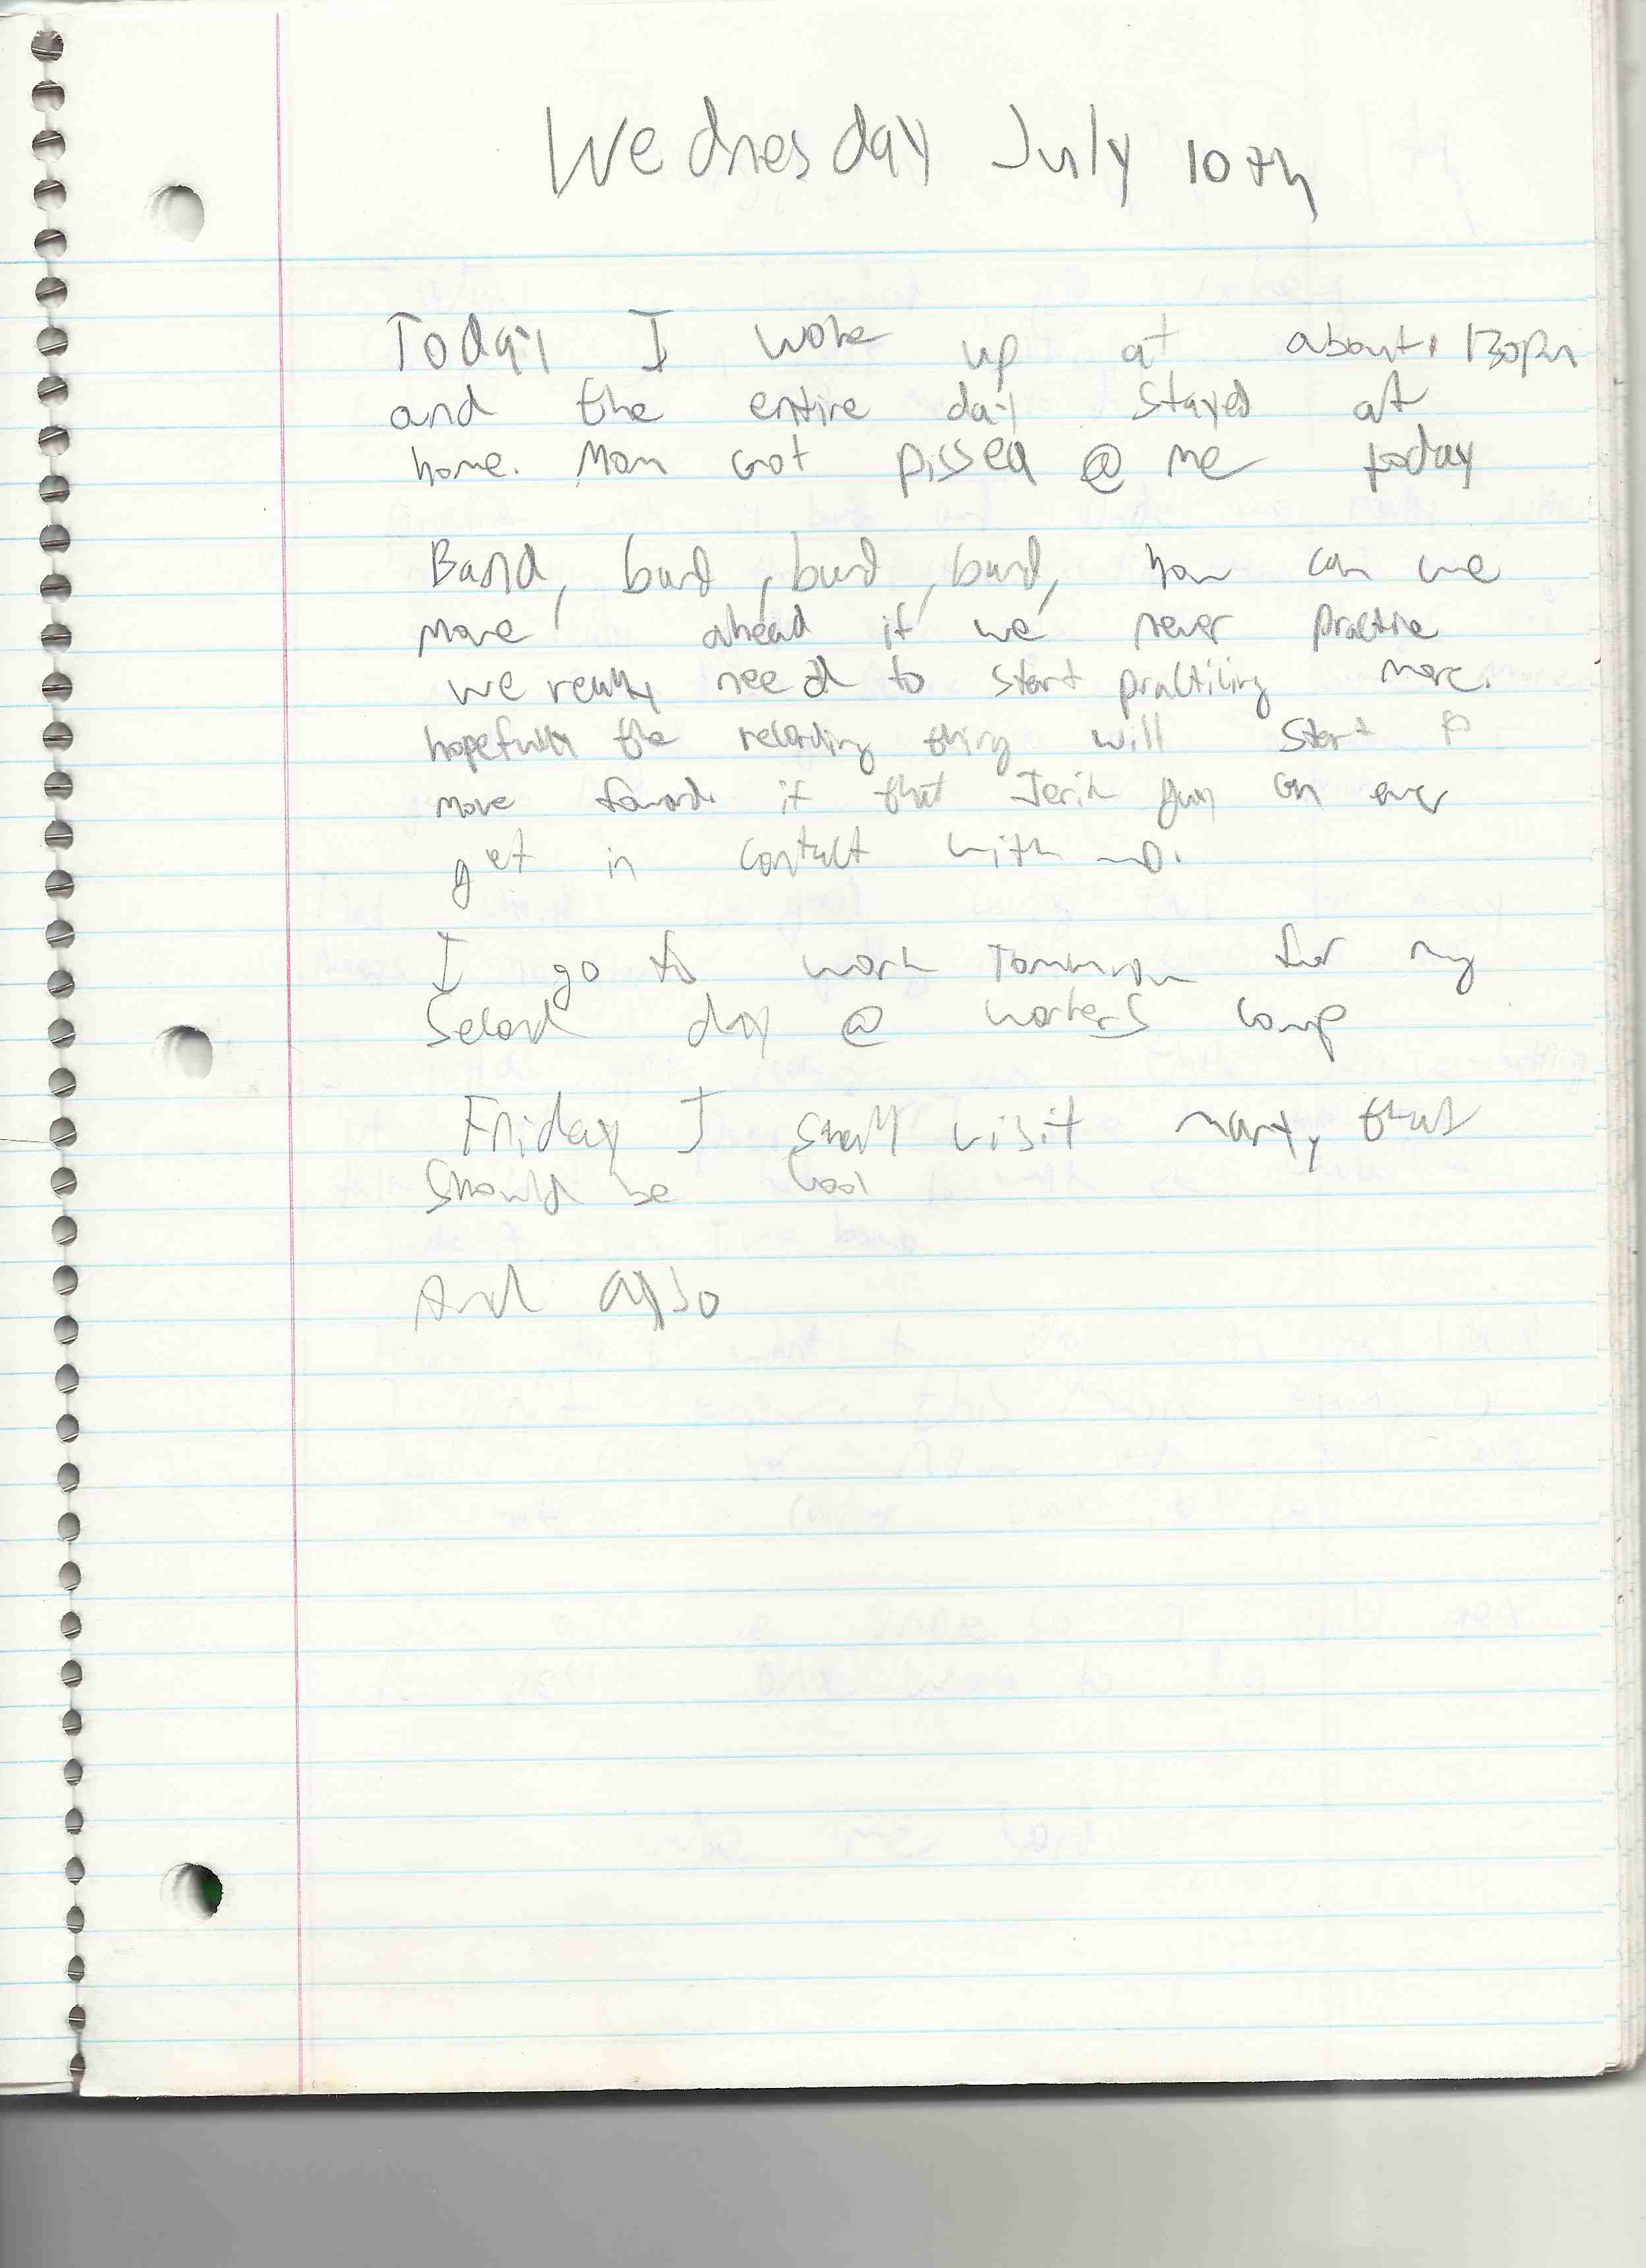 Wednesday July 10th
Today I woke up at about 130pm
and the entire day stayed at
home. Mom got pissed @ me today
Band, band, band, band, how can we
move ahead if we never practice
we really need to start practicing more.
hopefully the recording thing will start to
move if that guy can ever
get in contact with
I go to work Tomorrow for my
Second day @ workers comp
Friday I shall visit marty that
should be cool
And also